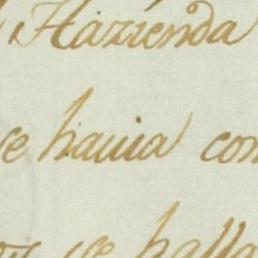 Hazienda
se hauia con
se halla